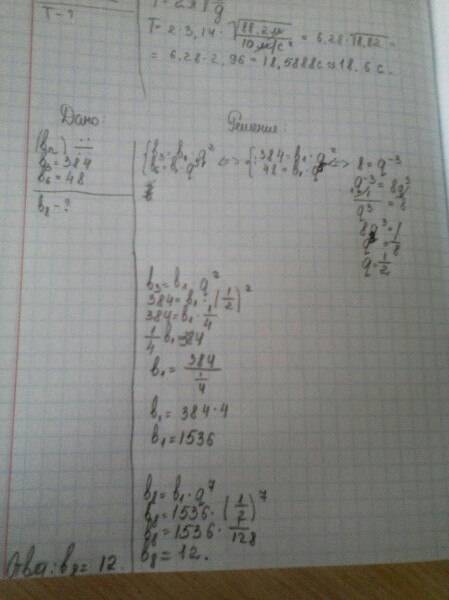 T-?
T = 2π√ g
T = 2·3,14·√88.2м/10м/с² = 6,28·√8,82 =
= 6,28·2,96 = 18,5888с ≈ 18,6 с.
Дано:
Решение:
(bn) ∺
b3 = 384
b6 = 48
b8 - ?
{ b3 = b1·q² <=> { 384 = b1·q² <=> 8 = q⁻³
{ b6 = b1·q⁵ { 48 = b1·q⁵
q⁻³ = 8
1/q³ = 8
8q³ = 1
q³ = 1/8
q = 1/2
b3 = b1·q²
384 = b1·(1/2)²
384 = b1·1/4
1/4 b1 = 384
b1 = 384/(1/4)
b1 = 384·4
b1 = 1536
b8 = b1·q⁷
b8 = 1536·(1/2)⁷
b8 = 1536·1/128
b8 = 12.
Ответ: b8 = 12.